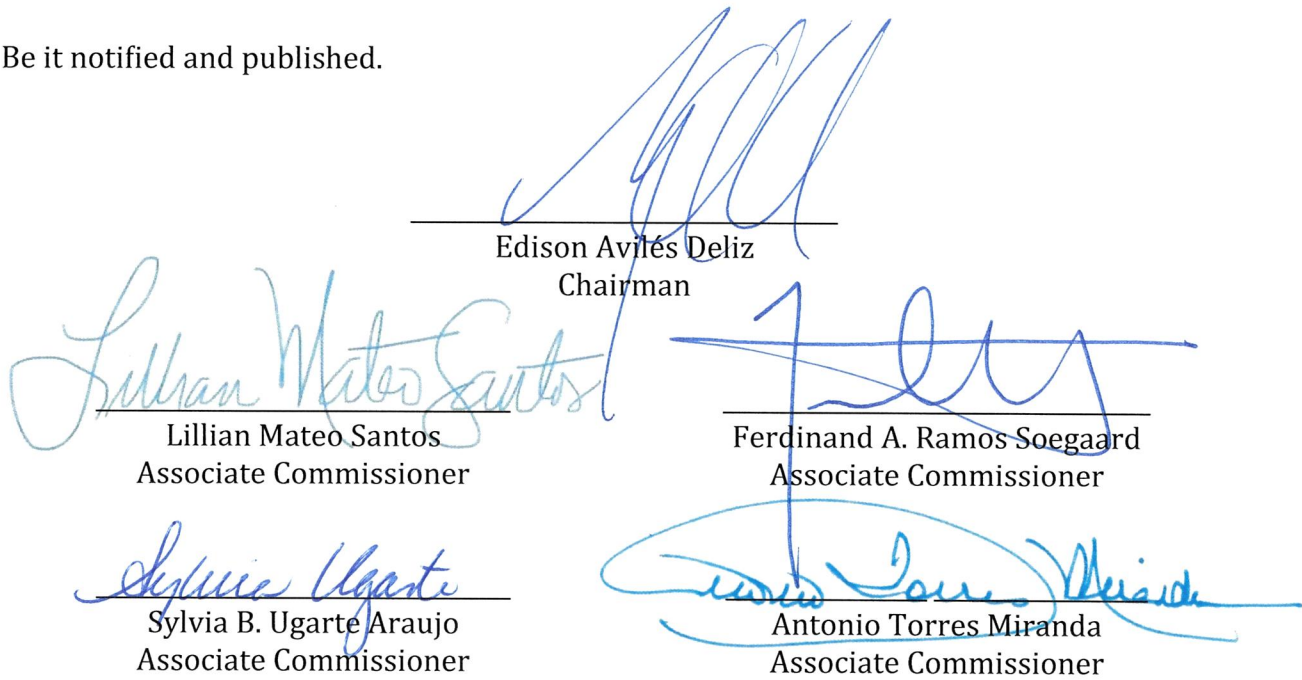 Be it notified and published.
Edison Avilés Deliz
Chairman
Lillian Mateo Santos
Lillian Mateo Santos
Associate Commissioner
Ferdinand A. Ramos Soegaard
Associate Commissioner
Sylvia Ugarte
Sylvia B. Ugarte Araujo
Associate Commissioner
Antonio Torres Miranda
Antonio Torres Miranda
Associate Commissioner